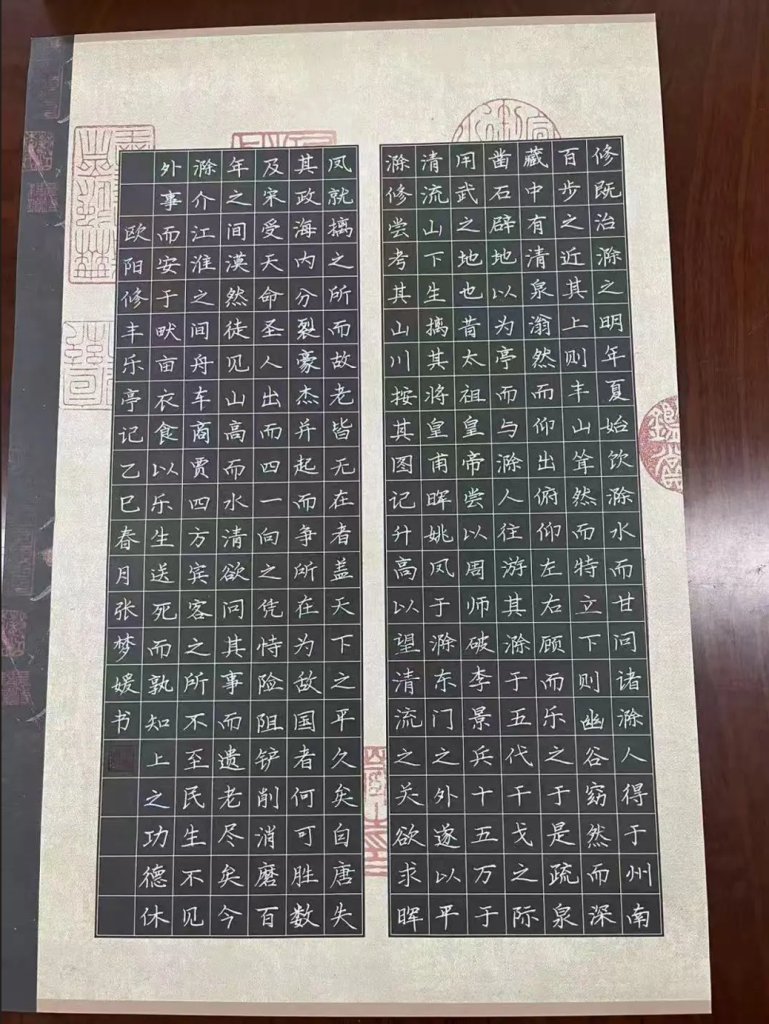 修既治滁之明年夏始饮滁水而甘问诸滁人得于州南
百步之近其上则丰山耸然而特立下则幽谷窈然而深
藏中有清泉滃然而仰出俯仰左右顾而乐之于是疏泉
凿石辟地以为亭而与滁人往游其滁于五代干戈之际
用武之地也昔太祖皇帝尝以周师破李景兵十五万于
清流山下生擒其将皇甫晖姚凤于滁东门之外遂以平
滁修尝考其山川按其图记升高以望清流之关欲求晖
凤就擒之所而故老皆无在者盖天下之平久矣自唐失
其政海内分裂豪杰并起而争所在为敌国者何可胜数
及宋受天命圣人出而四一向之凭恃险阻铲削消磨百
年之间漠然徒见山高而水清欲问其事而遗老尽矣今
滁介江淮之间舟车商贾四方宾客之所不至民生不见
外事而安于畎亩衣食以乐生送死而孰知上之功德休
欧阳修丰乐亭记乙巳春月张梦媛书